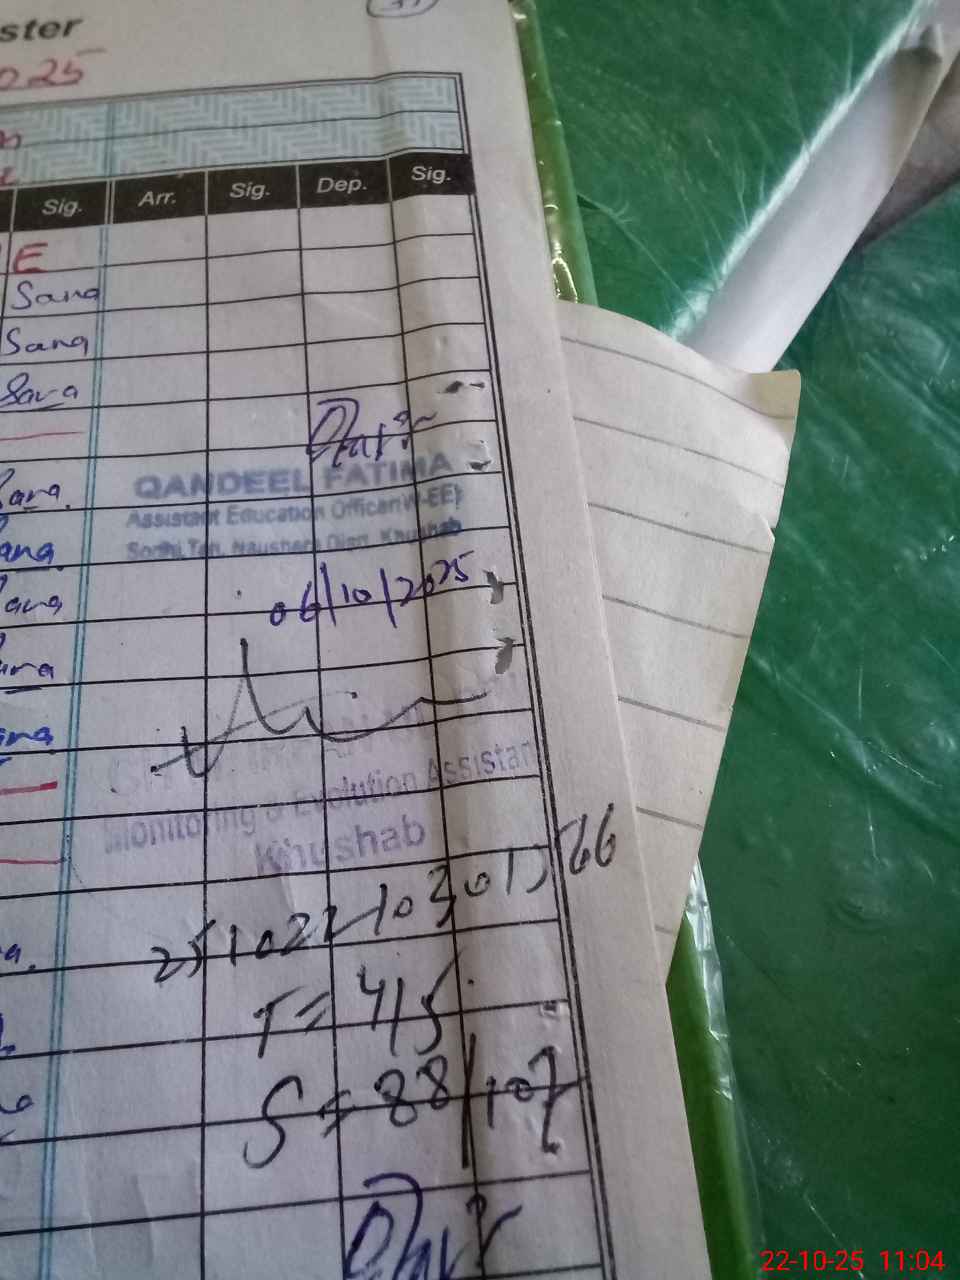 ster
025
Sig. Arr. Sig. Dep. Sig.
E
Sana
Sana
Sana
Sana.
ana
ana
ana
ana
QANDEEL FATIMA
Assistant Education Officer(W-EE)
Sodhi, Teh. Naushera Distt. Khushab
06/10/2025
Monitoring & Evolution Assistan
Khushab
T = 4/5
S = 88/107
22-10-25 11:04